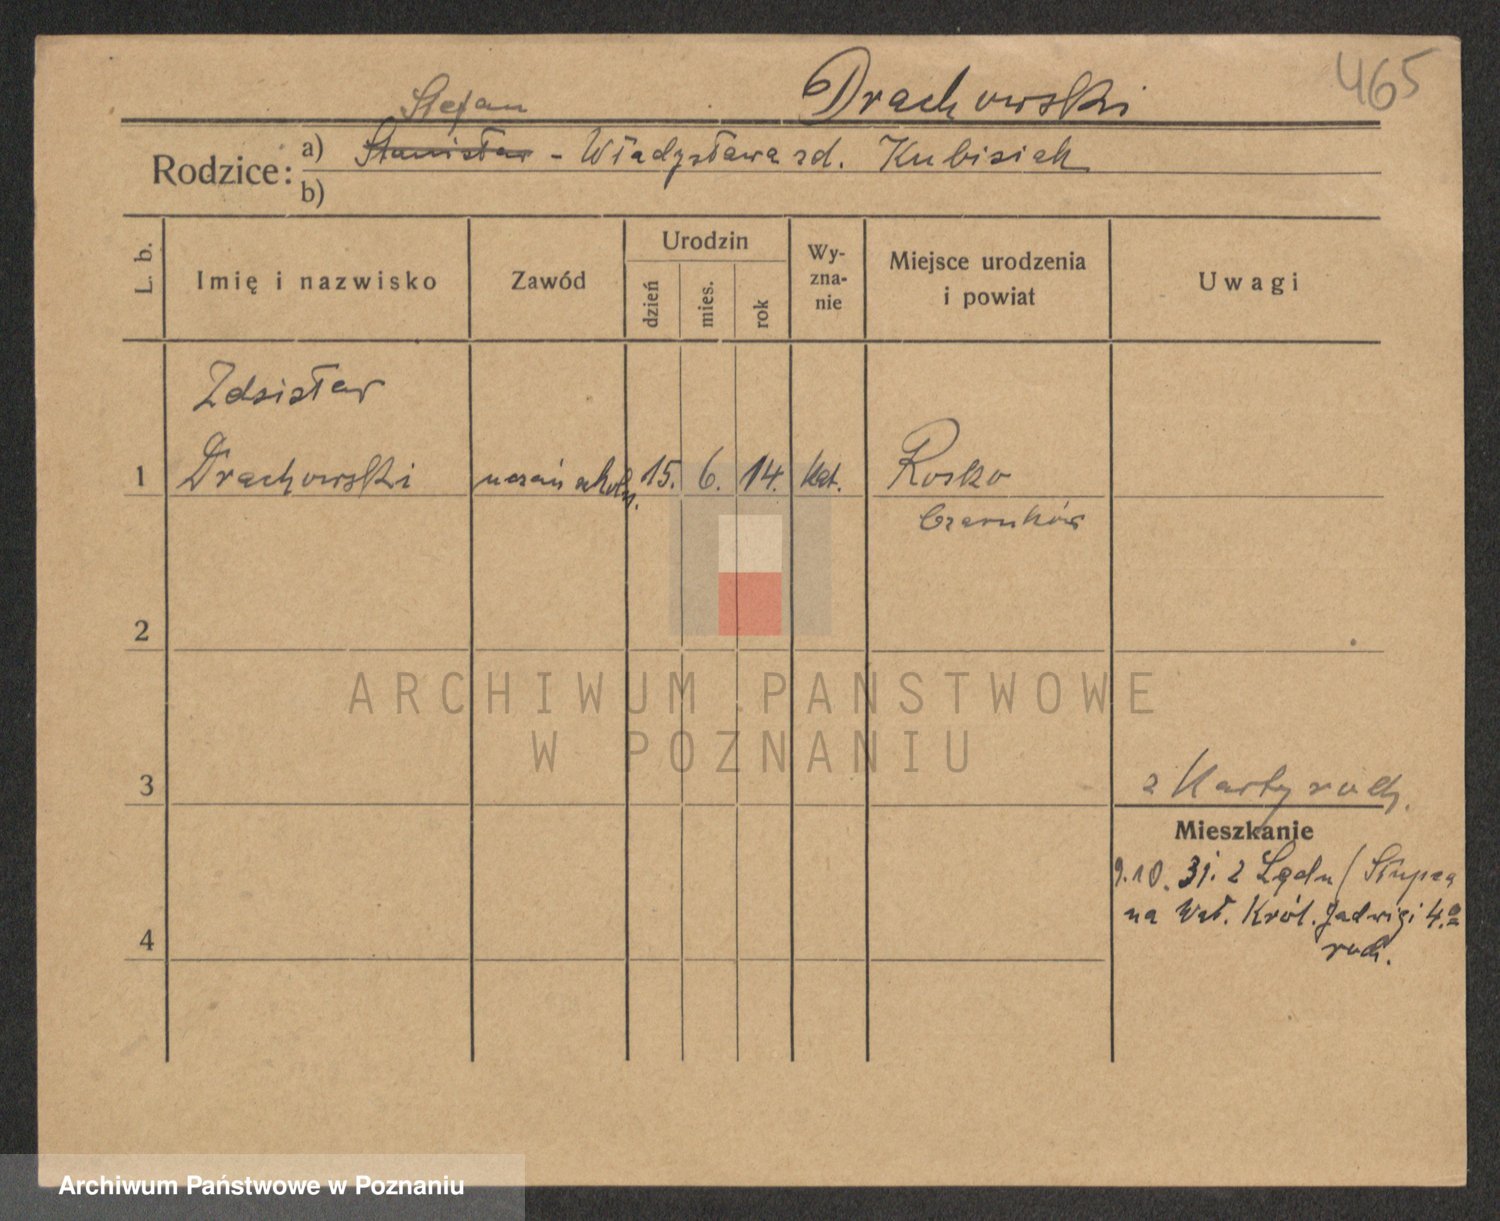 465
Drachowski
Stefan
Rodzice: a) Stanisław - Władysława zd. Kubisiak
b)
L. b. Imię i nazwisko Zawód Urodzin dzień mies. rok Wyzna-nie Miejsce urodzenia i powiat Uwagi
Zdzisław
1 Drachowski uczeń szkoln. 15. 6. 14. kat. Rosko
Czarnków
2
ARCHIWUM PAŃSTWOWE
W POZNANIU
3
z Karty rodz.
Mieszkanie
9.10.31. z Lądu / Słupca
na Wał. Król. Jadwigi 4.a
rodz.
4
Archiwum Państwowe w Poznaniu